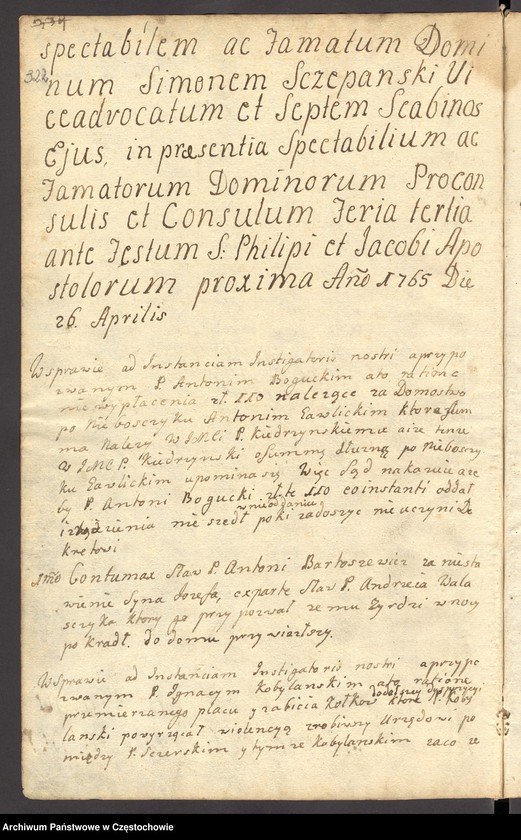 322
spectabilem ac Famatum Domi
num Simonem Sczepanski Vi
ceadvocatum et Septem Scabinos
Ejus, in præsentia Spectabilium ac
Famatorum Dominorum Procon
sulis et Consulum Feria tertia
ante Festum S: Philipi et Jacobi Apo
stolorum proxima Año 1765 Die
26. Aprilis
Wsprawie ad Instanciam Instigatoris nostri aprzypo
zwanym P. Antonim Boguckim ato ratione
niewypłacenia zł. 110 nalezące za Domostwo
po Nieboszczyku Antonim Gawlickim ktora sum
ma Nalezy WJMCi P. Kiedrzynskiemu aize tenze
WJMCP. Kiedrzynski osummę dłuzną po Nieboszy
ku Gawlickim upomina się Więc Sąd nakazuie aze
by P. Antoni Bogucki zł te 110 coinstanti oddał
wnieoddaniu
nie szedł poki zadoszyc nie uczyni De
kretowi
Año Contumax Staw P. Antoni Bartoszewicz za niesta
wienie Syna Jozefa, exparte Staw P. Andrzeia Wala
szczyka ktory go przypozwał ze mu Zyrdzi w nocy
pokradł. do domu przywiozszy.
Wsprawie ad Instanciam Instigatoris nostri aprzypo
zwanym P. Ignacym Kobylanskim ato ratione
przemierzanego placu y zabicia kołkow ktore P. Koby
lanski powyrzącał violencyą zrobiwszy Urzędowi po
między P. Sczerskim y tymze Kobylanskim zaco ze
Archiwum Państwowe w Częstochowie